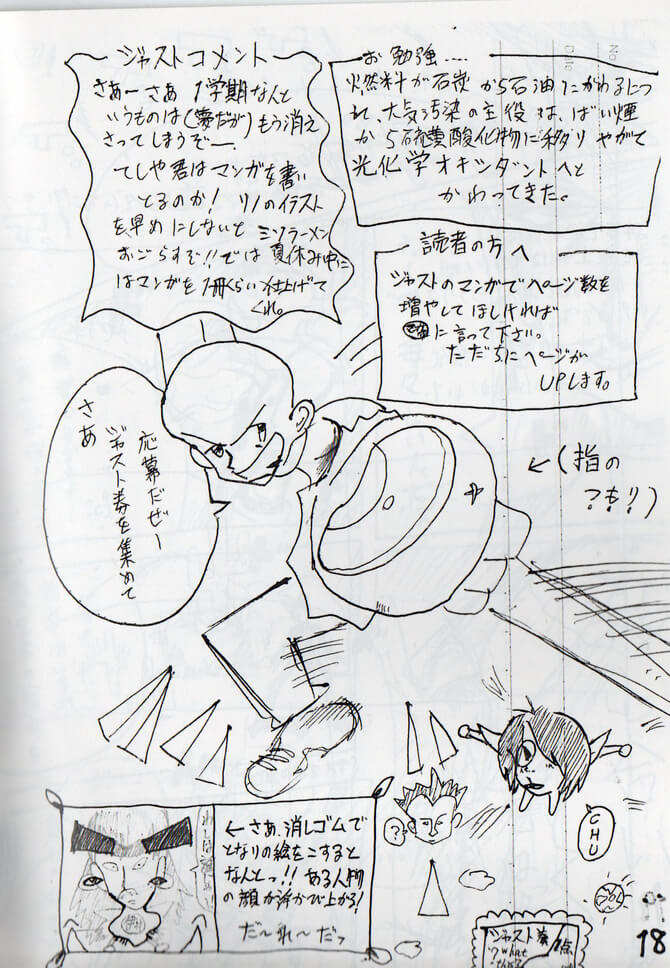 ジャストコメント
さあーさあ 1学期なんと
いうものは(夢だが)もう消え
さってしまうぞー。
てしや君はマンガを書い
とるのか! リノのイラスト
を早めにしないと ミソラーメン
おごらすぞ!!では 夏休み中に
はマンガを1冊くらい仕上げて
くれ。
お勉強....
燃料が石炭から石油にかわるにつ
れ、大気汚染の主役は、ばい煙
から硫黄酸化物に移り やがて
光化学オキシダントへと
かわってきた。
読者の方へ
ジャストのマンガでページ数を
増やしてほしければ
に言って下さい。
ただちにページが
UPします。
さあ
ジャスト券を集めて
応募だぜー
←(指の
?もり)
←さあ、消しゴムで
となりの絵をこすると
なんとっ!!ある人物
の顔が浮かび上がる!
だ〜れ〜だっ
?
CHU
ジャスト券 1徐
? what
this?
18
No.
Date